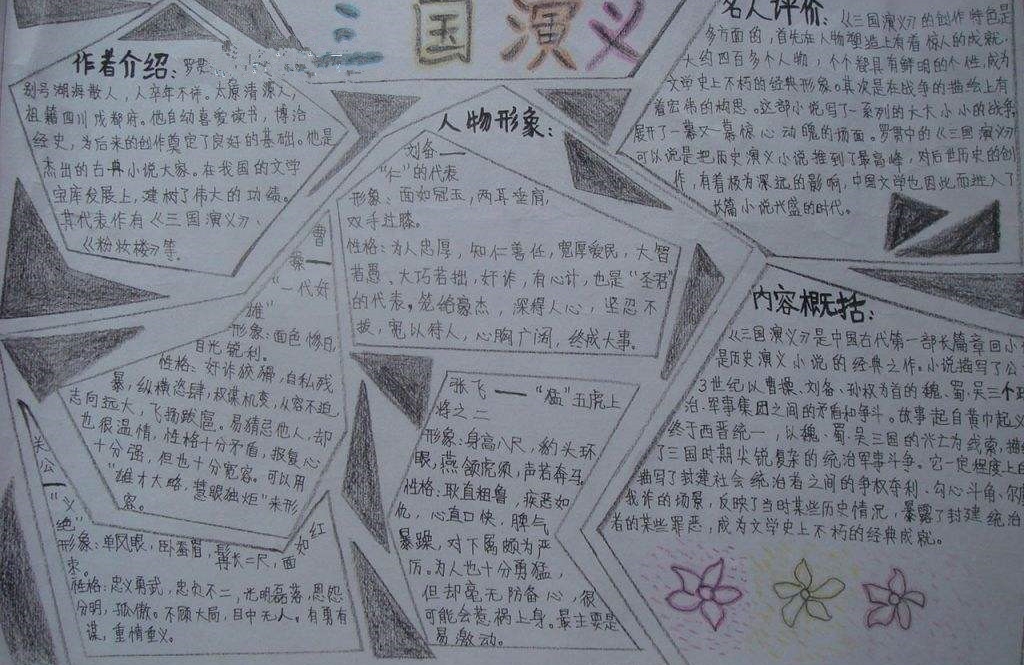 三国演义
作者介绍：罗贯
别号湖海散人，人卒年不详。太原清源人，
祖籍四川成都府。他自幼喜爱读书，博洽
经史，为后来的创作奠定了良好的基础。他是
杰出的古典小说大家。在我国的文学
宝库发展上，建树了伟大的功绩。
其代表作有《三国演义》
《粉妆楼》等。
人物形象：
刘备——
“仁”的代表
形象：面如冠玉，两耳垂肩，
双手过膝。
性格：为人忠厚，知仁善任，宽厚爱民，大智
若愚、大巧若拙，奸诈，有心计，也是“圣君”
的代表。笼络豪杰，深得人心，坚忍不
拔，宽以待人，心胸广阔，终成大事。
曹
操——
“一代奸
雄”
形象：面色惨白，
目光锐利。
性格：奸诈狡猾，自私残
暴，纵横恣肆，权谋机变，从容不迫
志向远大，飞扬跋扈。易猜忌他人，却
也很温情，性格十分矛盾，报复心
十分强，但也十分宽容。可以用
“雄才大略，慧眼独炬”来形
容。
关
公——
“义
绝”
形象：单凤眼，卧蚕眉，髯长二尺，面如红
枣。
性格：忠义勇武，忠贞不二，光明磊落，恩怨
分明，孤傲。不顾大局，目中无人。有勇有
谋，重情重义。
张飞——“猛”五虎上
将之二
形象：身高八尺，豹头环
眼，燕颌虎须，声若奔马。
性格：耿直粗鲁，疾恶如
仇，心直口快，脾气
暴躁，对下属颇为严
厉。为人也十分勇猛，
但却毫无防备心，很
可能会惹祸上身。最主要是
易激动。
名人评价：《三国演义》的创作特色是
多方面的，首先在人物塑造上有着惊人的成就，
大约四百多个人物，个个都具有鲜明的个性，成为
文学史上不朽的经典形象。其次是在战争的描绘上有
着宏伟的构思。这部小说写了一系列的大大小小的战争，
展开了一幕又一幕惊心动魄的场面。罗贯中的《三国演义》
可以说是把历史演义小说推到了最高峰，对后世历史的创
作，有着极为深远的影响，中国文学也因此而进入了
长篇小说兴盛的时代。
内容概括：
《三国演义》是中国古代第一部长篇章回小
是历史演义小说的经典之作。小说描写了公
3世纪以曹操、刘备、孙权为首的魏、蜀、吴三个政
治、军事集团之间的矛盾和争斗。故事起自黄巾起义
终于西晋统一，以魏、蜀、吴三国的兴亡为线索，描
了三国时期尖锐复杂的统治军事斗争。它一定程度上的
描写了封建社会统治者之间的争权夺利、勾心斗角、尔虞
我诈的场景，反映了当时某些历史情况，暴露了封建统治
者的某些罪恶，成为文学史上不朽的经典成就。